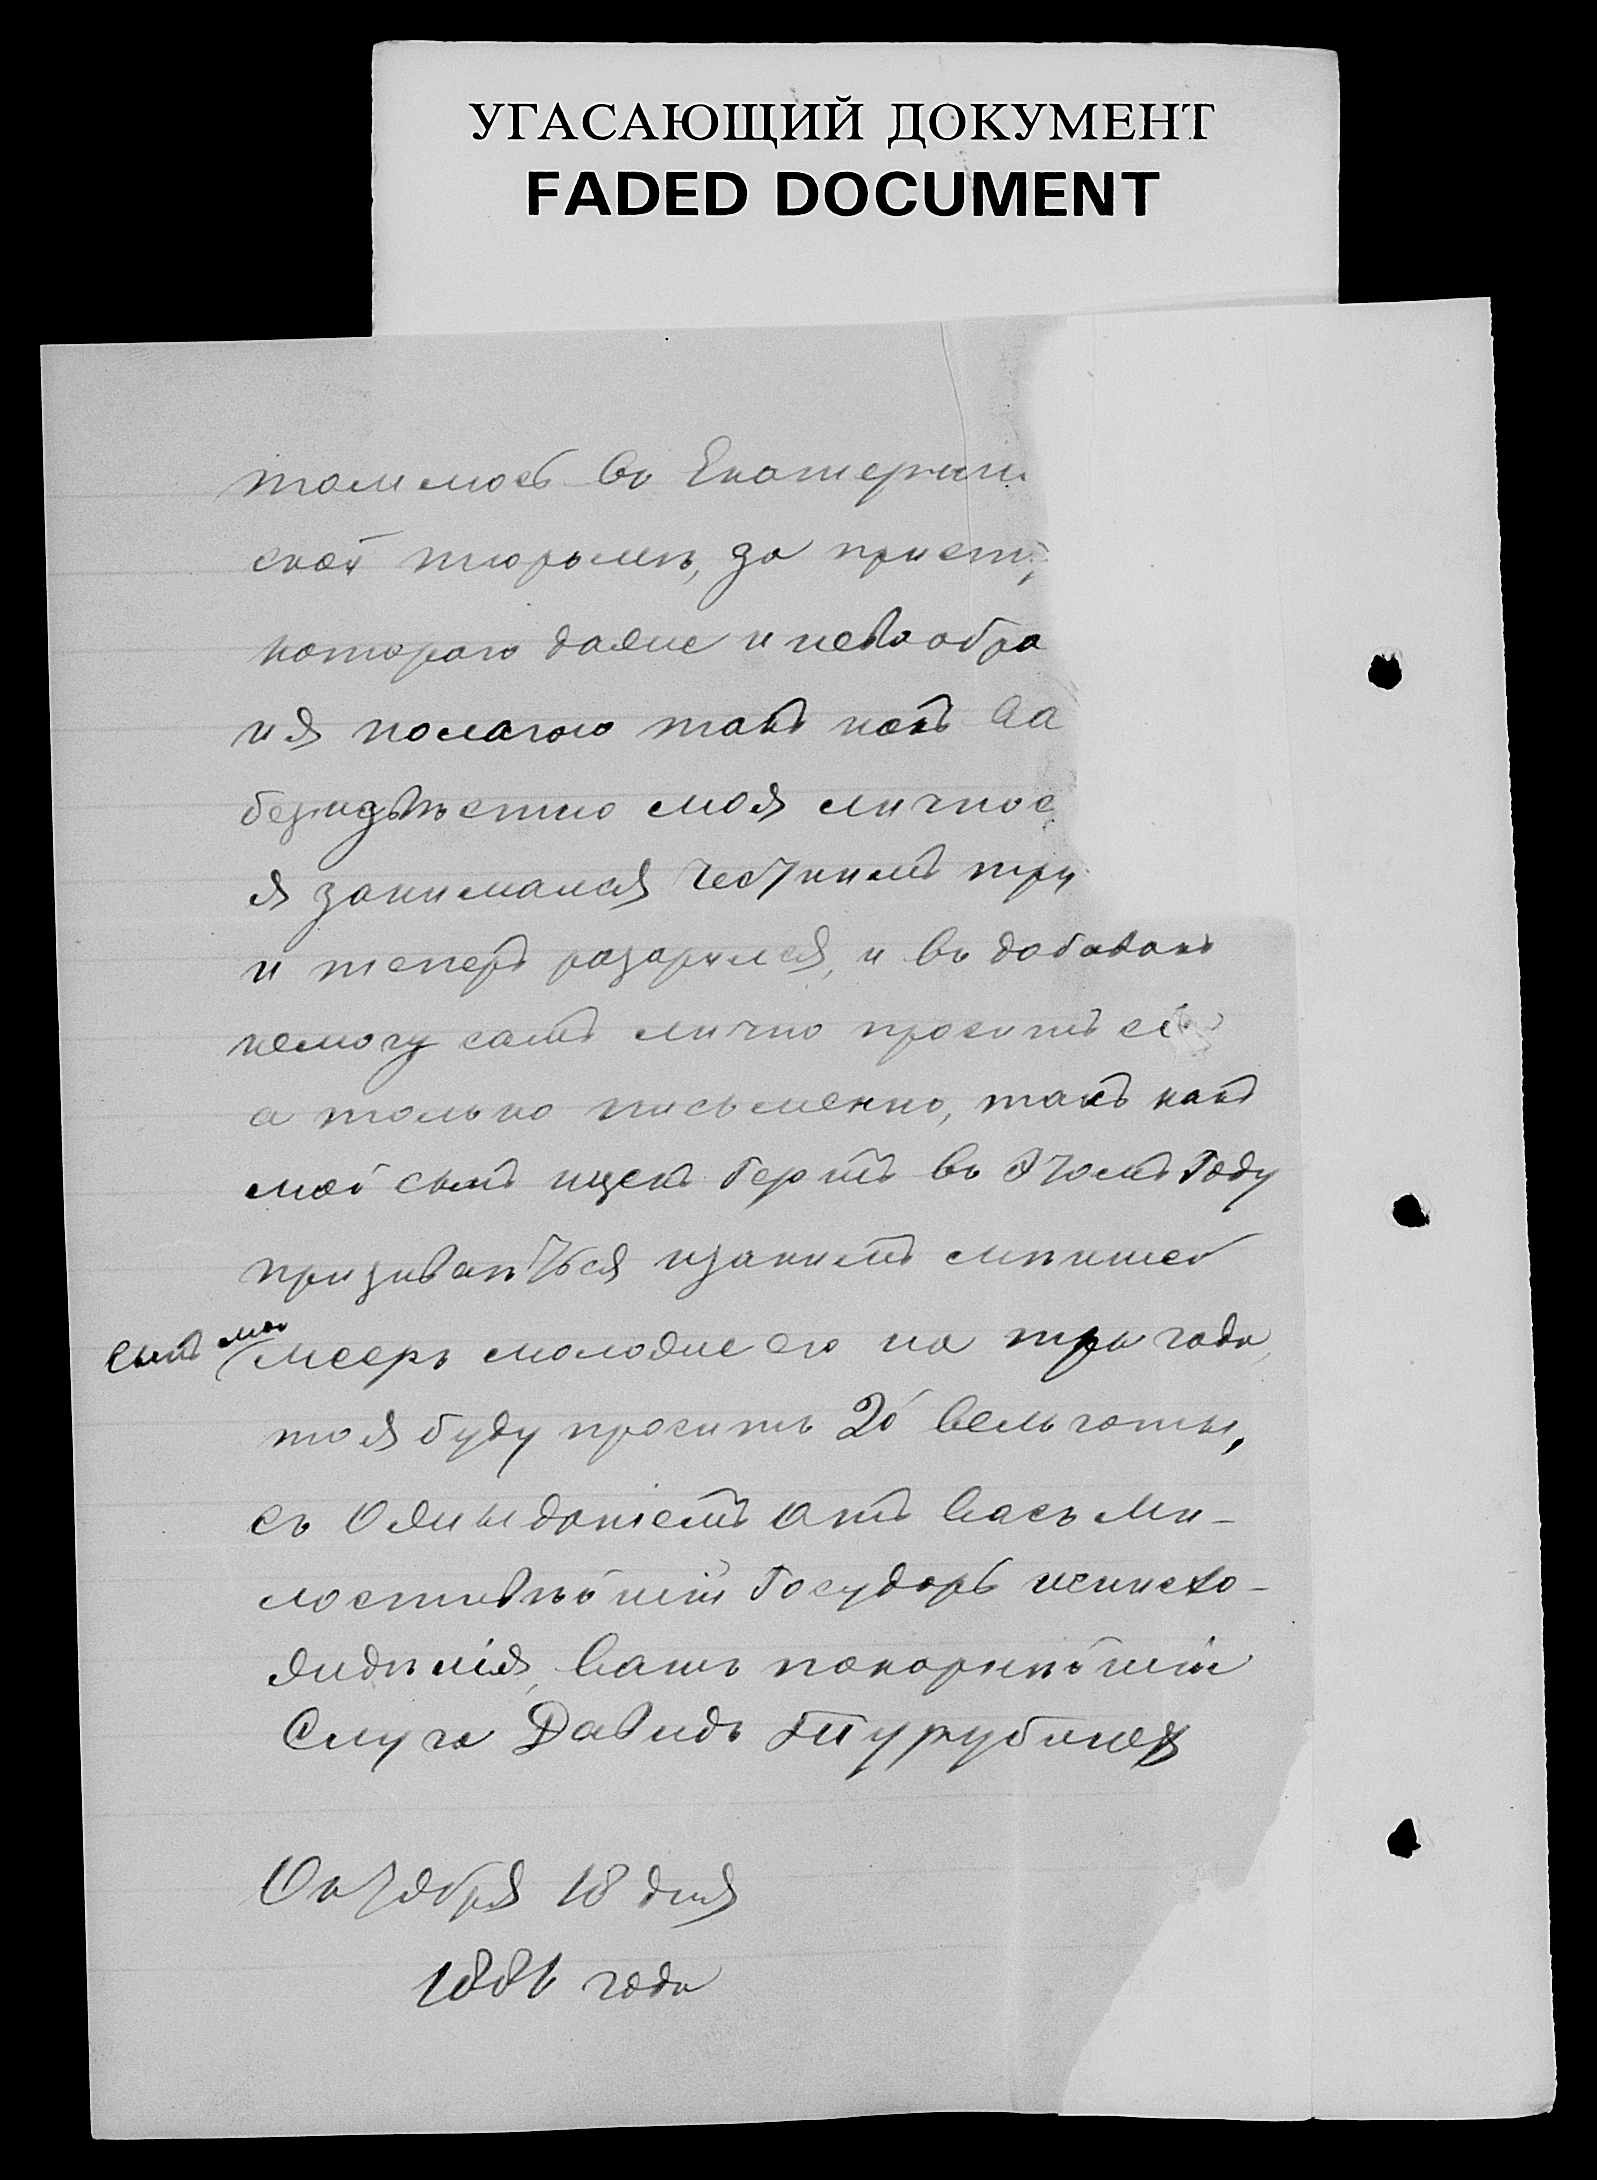 УГАСАЮЩИЙ ДОКУМЕНТ
FADED DOCUMENT
томилось въ Екатерин
ской тюрьмѣ, за
котораго даже и невообра
ия полагаю такъ какъ Ва
моя личнос
я занимался честнимъ тру
и теперь разарился, и въ добавокъ
немогу самъ лично просить
а только письменно, такъ какъ
мой сынъ ицекъ Герпъ въ Этомъ Году
призиваться изанимъ
сынъ мой мееръ моложе его на три года,
то я буду просить 2й вельготы,
съ Ожиданіемъ отъ васъ Ми-
лостивѣйшій Государь иснисхо-
жиденія, вашъ покорнѣйшій
Слуга Давидъ
Октября 18 дня
1881 года